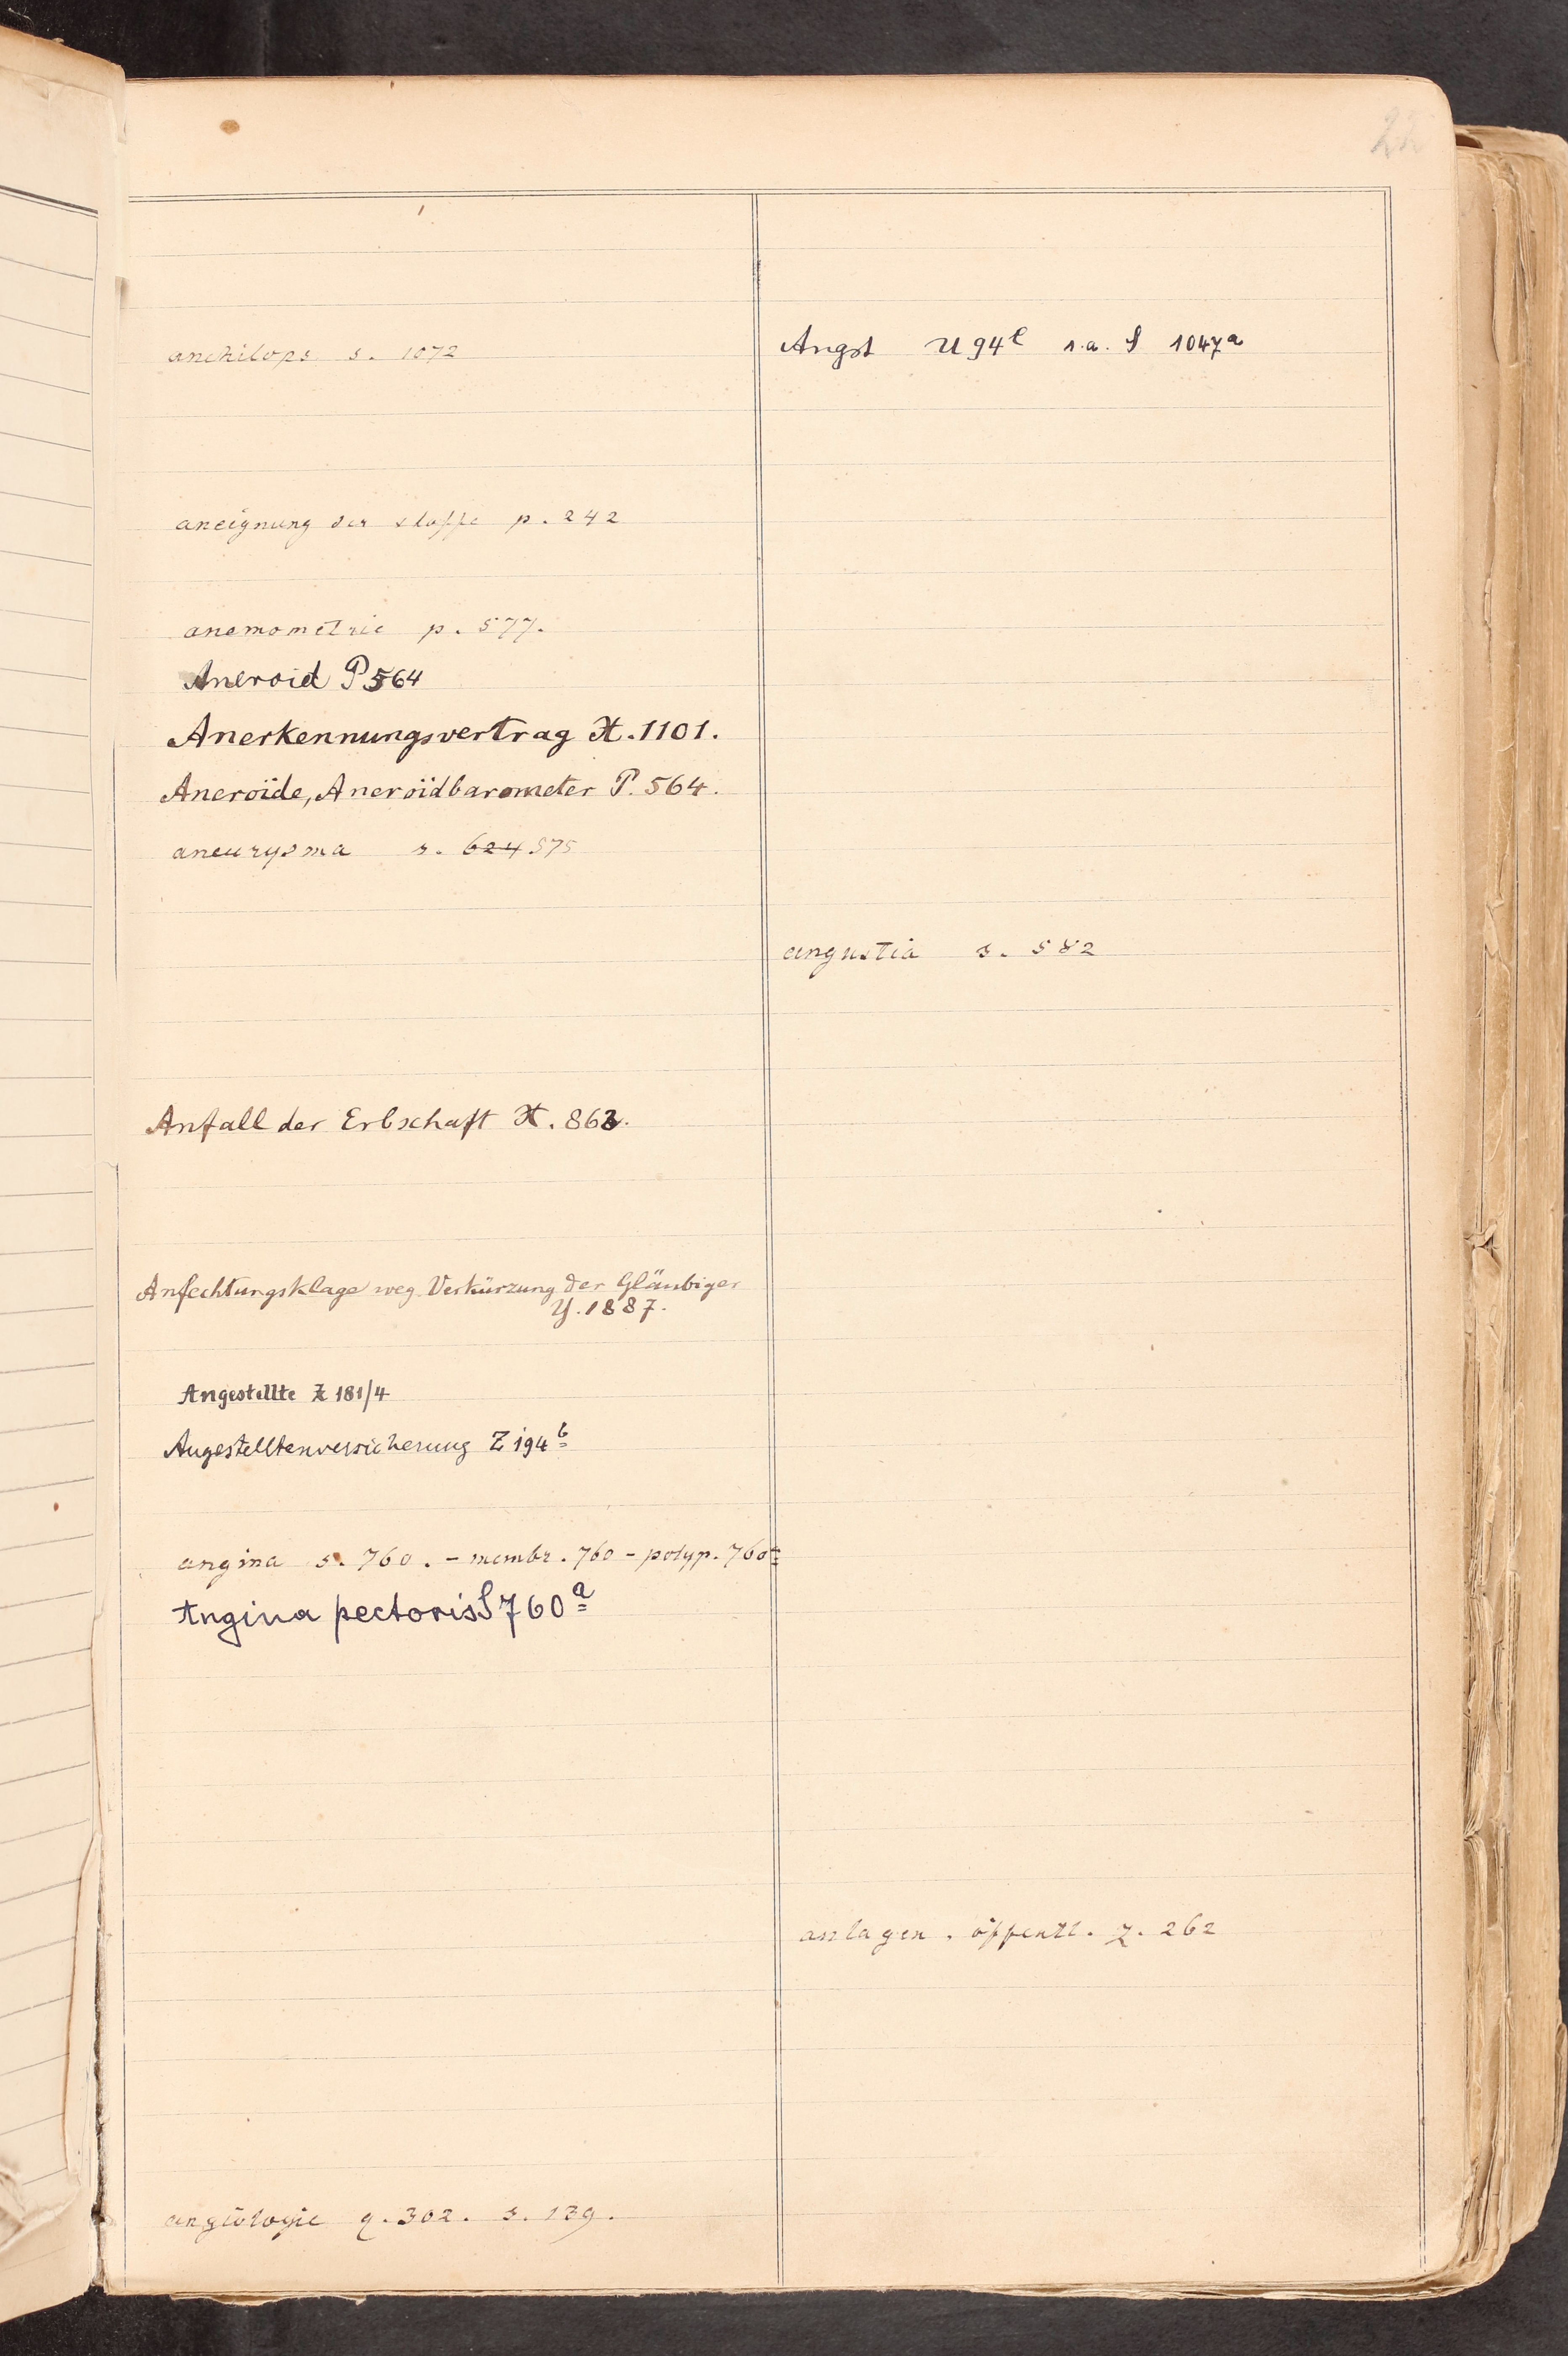 22
anchilops s. 1072
aneignung der stoffe p. 242
anemometrie p. 577.
Aneroid P 564
Anerkennungsvertrag X. 1101.
Aneroïde, Aneroïdbarometer P. 564.
aneurysma s. 624 575
Anfall der Erbschaft X. 862.
Anfechtungsklage weg. Verkürzung der Gläubiger
Y. 1887.
Angestellte Z 181/4
Angestelltenversicherung Z 194 b
angina s. 760. - membr. 760 - polyp. 760
Angina pectoris S 760 a
angiologie q. 302. s. 139.
Angst U 94 e s.a. S 1047 a
angustia s. 582
anlagen. öffentl. z. 262